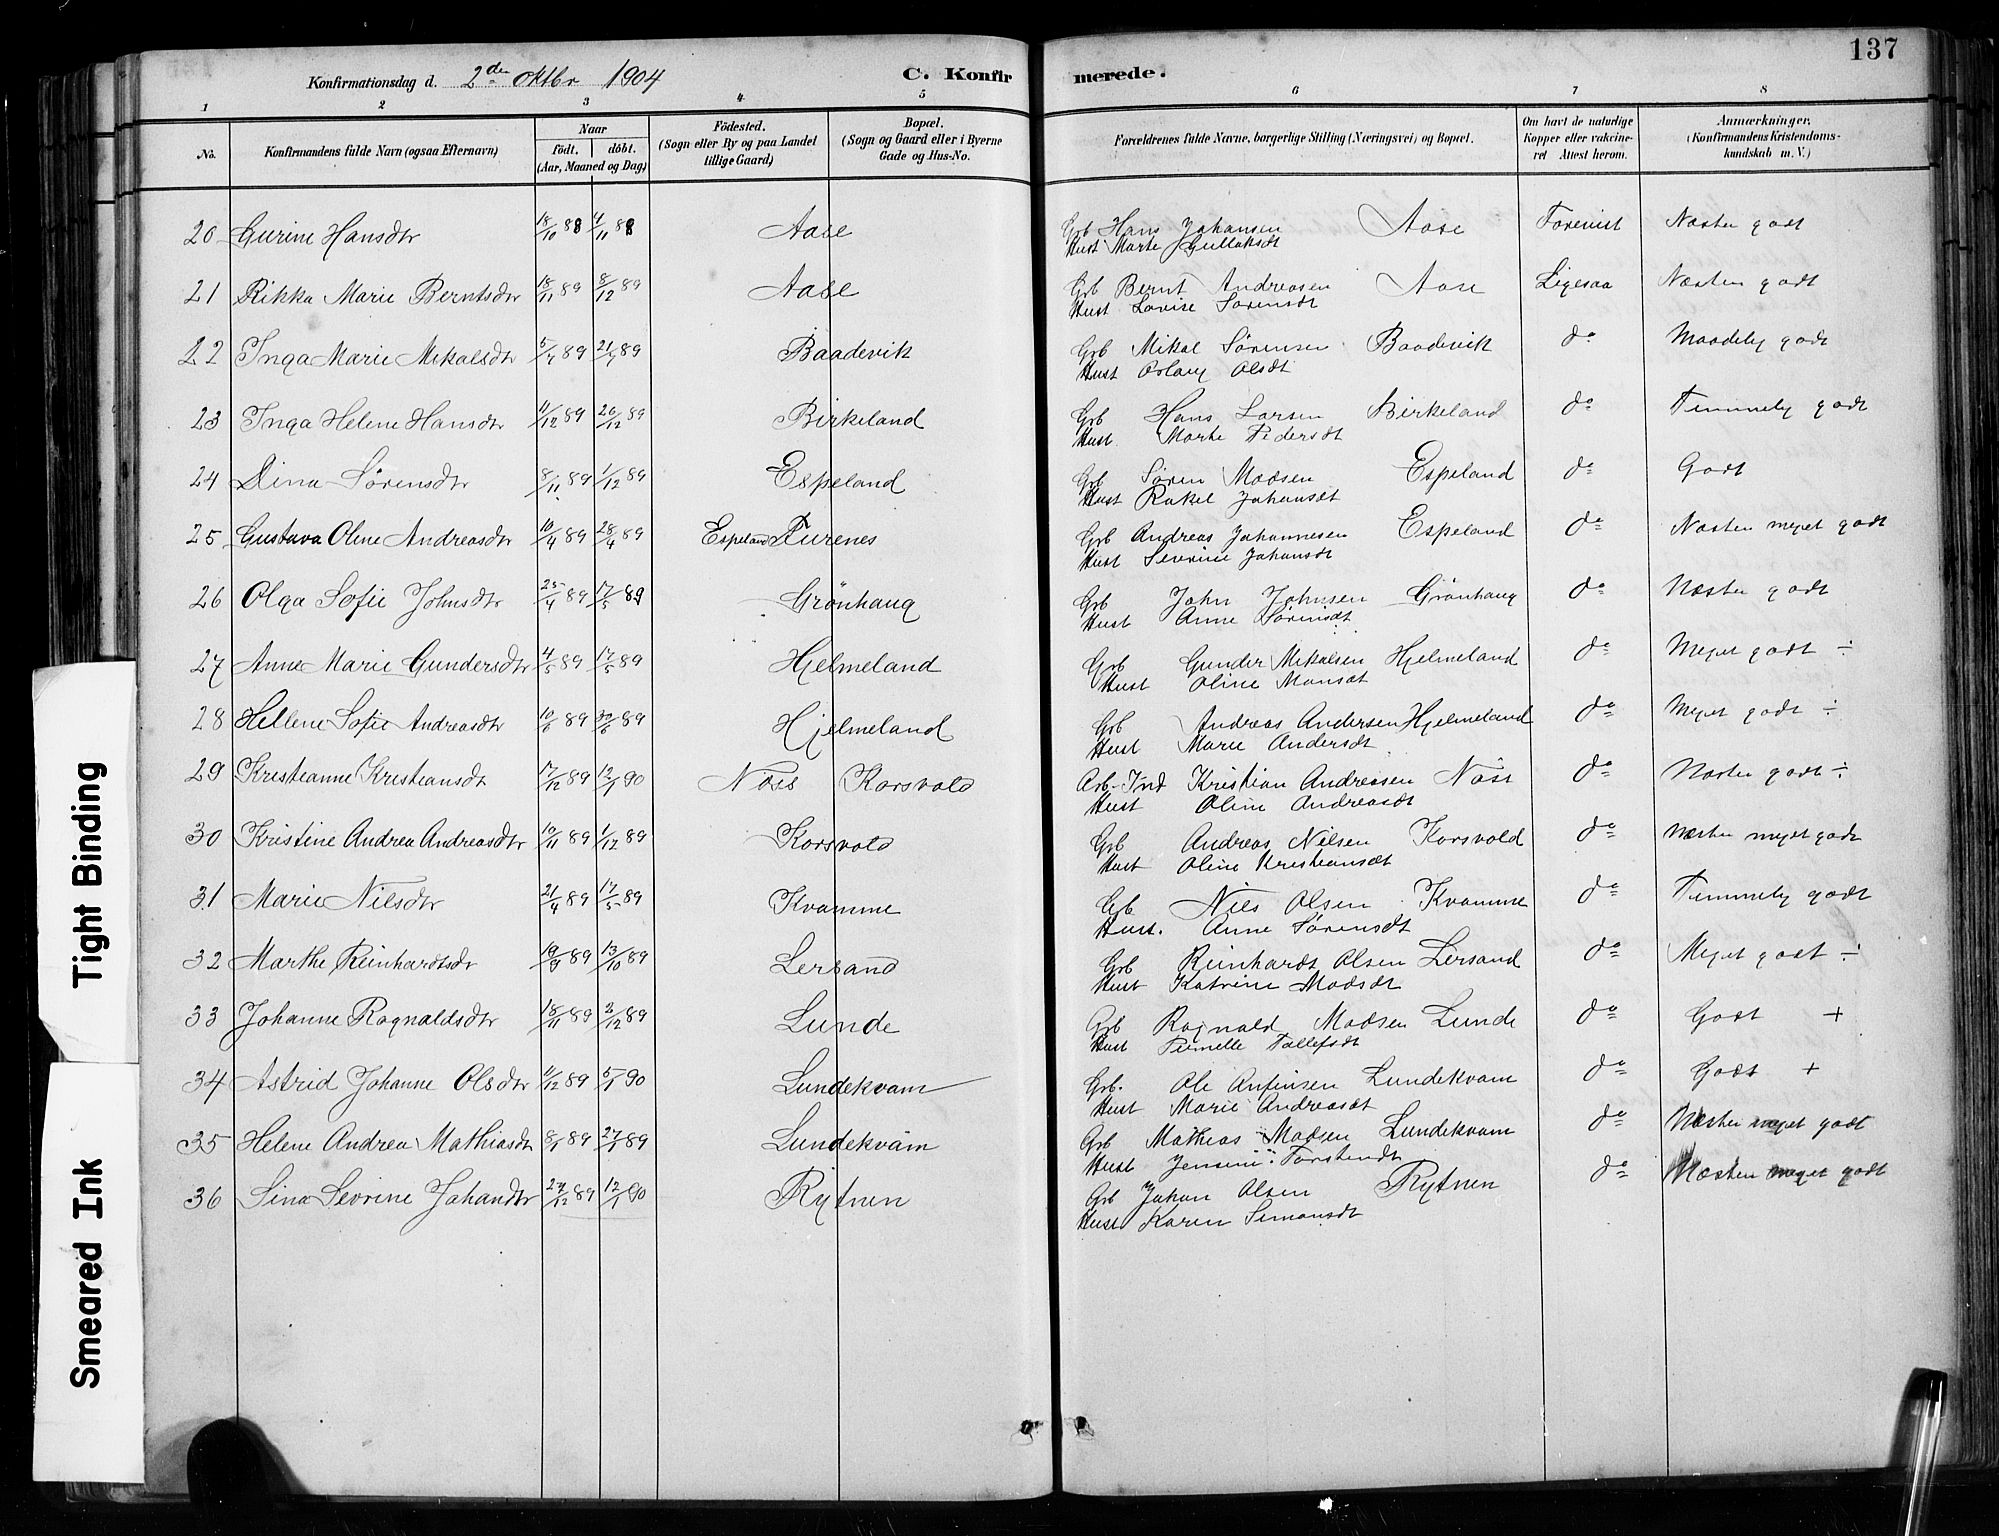 137
Konfirmationsdag d. 2den oktbr 1904
C. Konfirmerede.
1 2 3 4 5 6 7 8
No.
Konfirmandens fulde Navn (ogsaa Efternavn)
Naar
födt. döbt.
(Aar, Maaned og Dag)
Födested.
(Sogn eller By og paa Landet tillige Gaard)
Bopæl.
(Sogn og Gaard eller i Byerne Gade og Hus-No.
Forældrenes fulde Navne, borgerlige Stilling (Næringsvei) og Bopæl.
Om havt de naturlige Kopper eller vakcineret Attest herom.
Anmærkninger.
(Konfirmandens Kristendomskundskab m. V.)
20 Gurine Hansdtr 18/10 88 4/11 88 Aase Grb Hans Johansen Aase Forevist Næsten godt
Hust Marte Gullaksdt
21 Rikka Marie Berntsdtr 18/11 89 8/12 89 Aase Grb Bernt Andreasen Aase Ligesaa Næsten godt
Hust Lovise Sørensdt
22 Inga Marie Mikalsdtr 5/7 89 21/7 89 Baadevik Grb Mikal Sørensen Baadevik do Maadelig godt
Hust Olsdt
23 Inga Helene Hansdtr 11/12 89 26/12 89 Birkeland Grb Hans Larsen Birkeland do Temmelig godt
Hust. Marte Pedersdt
24 Dina Sørensdtr 8/11 89 1/12 89 Espeland Grb Sören Madsen Espeland do Godt
Hust Rakel Johansdt
25 Gustava Oline Andreasdtr 10/4 89 28/4 89 Espeland Furenes Grb Andreas Johannesen Espeland do Næsten meget godt
Hust Severine Johansdt
26 Olga Sofie Johnsdtr 25/4 89 17/5 89 Grönhaug Grb John Johnsen Grönhaug do Næsten godt
Hust Anne Sörensdt
27 Anna Marie Gundersdtr 4/5 89 17/5 89 Hjelmeland Grb Gunder Mikalsen Hjelmeland do Meget godt ÷
Hust Oline Monsdt
28 Hellene Sofie Andreasdtr 10/6 89 30/6 89 Hjelmeland Grb Andreas Andersen Hjelmeland do Meget godt ÷
Hust Marie Andersdt
29 Kristianne Kristiansdt 17/12 89 12/1 90 Nöss Korsvold Arb-Ind Kristian Andreasen Nöss do Næsten godt ÷
Hust Oline Andreasdt
30 Kristine Andrea Andreasdtr 10/11 89 1/12 89 Korsvold Grb Andreas Nilsen Korsvold do Næsten meget godt
Hust Oline Kristiansdt
31 Marie Nilsdtr 21/4 89 17/5 89 Kvamme Grb Nils Olsen Kvamme do Temmelig godt
Hust. Anne Sørensdt
32 Marthe Reinhardtsdr 19/9 89 13/10 89 Lersand Grb Reinhardt Olsen Lersand do Meget godt ÷
Hust Katrine Madsdt
33 Johanne Ragnaldsdtr 18/11 89 2/12 89 Lunde Grb Ragnald Madsen Lunde do Godt +
Hust Pernelle Tollefsdt
34 Astrid Johanne Olsdtr 11/12 89 5/1 90 Lundekvam Grb. Ole Anfinsen Lundekvam do Godt +
Hust Marie Andreasdt
35 Helene Andrea Mathiasdt 8/1 89 27/1 89 Lundekvam Grb Mathias Madsen Lundekvam do Næsten meget godt
Hust Jensine Torstendt
36 Sina Sevrine Johandtr 27/12 89 12/1 90 Rytnen Grb Johan Olsen Rytnen do Næsten meget godt
Hust Karen Simonsdt
Tight Binding
Smeared Ink